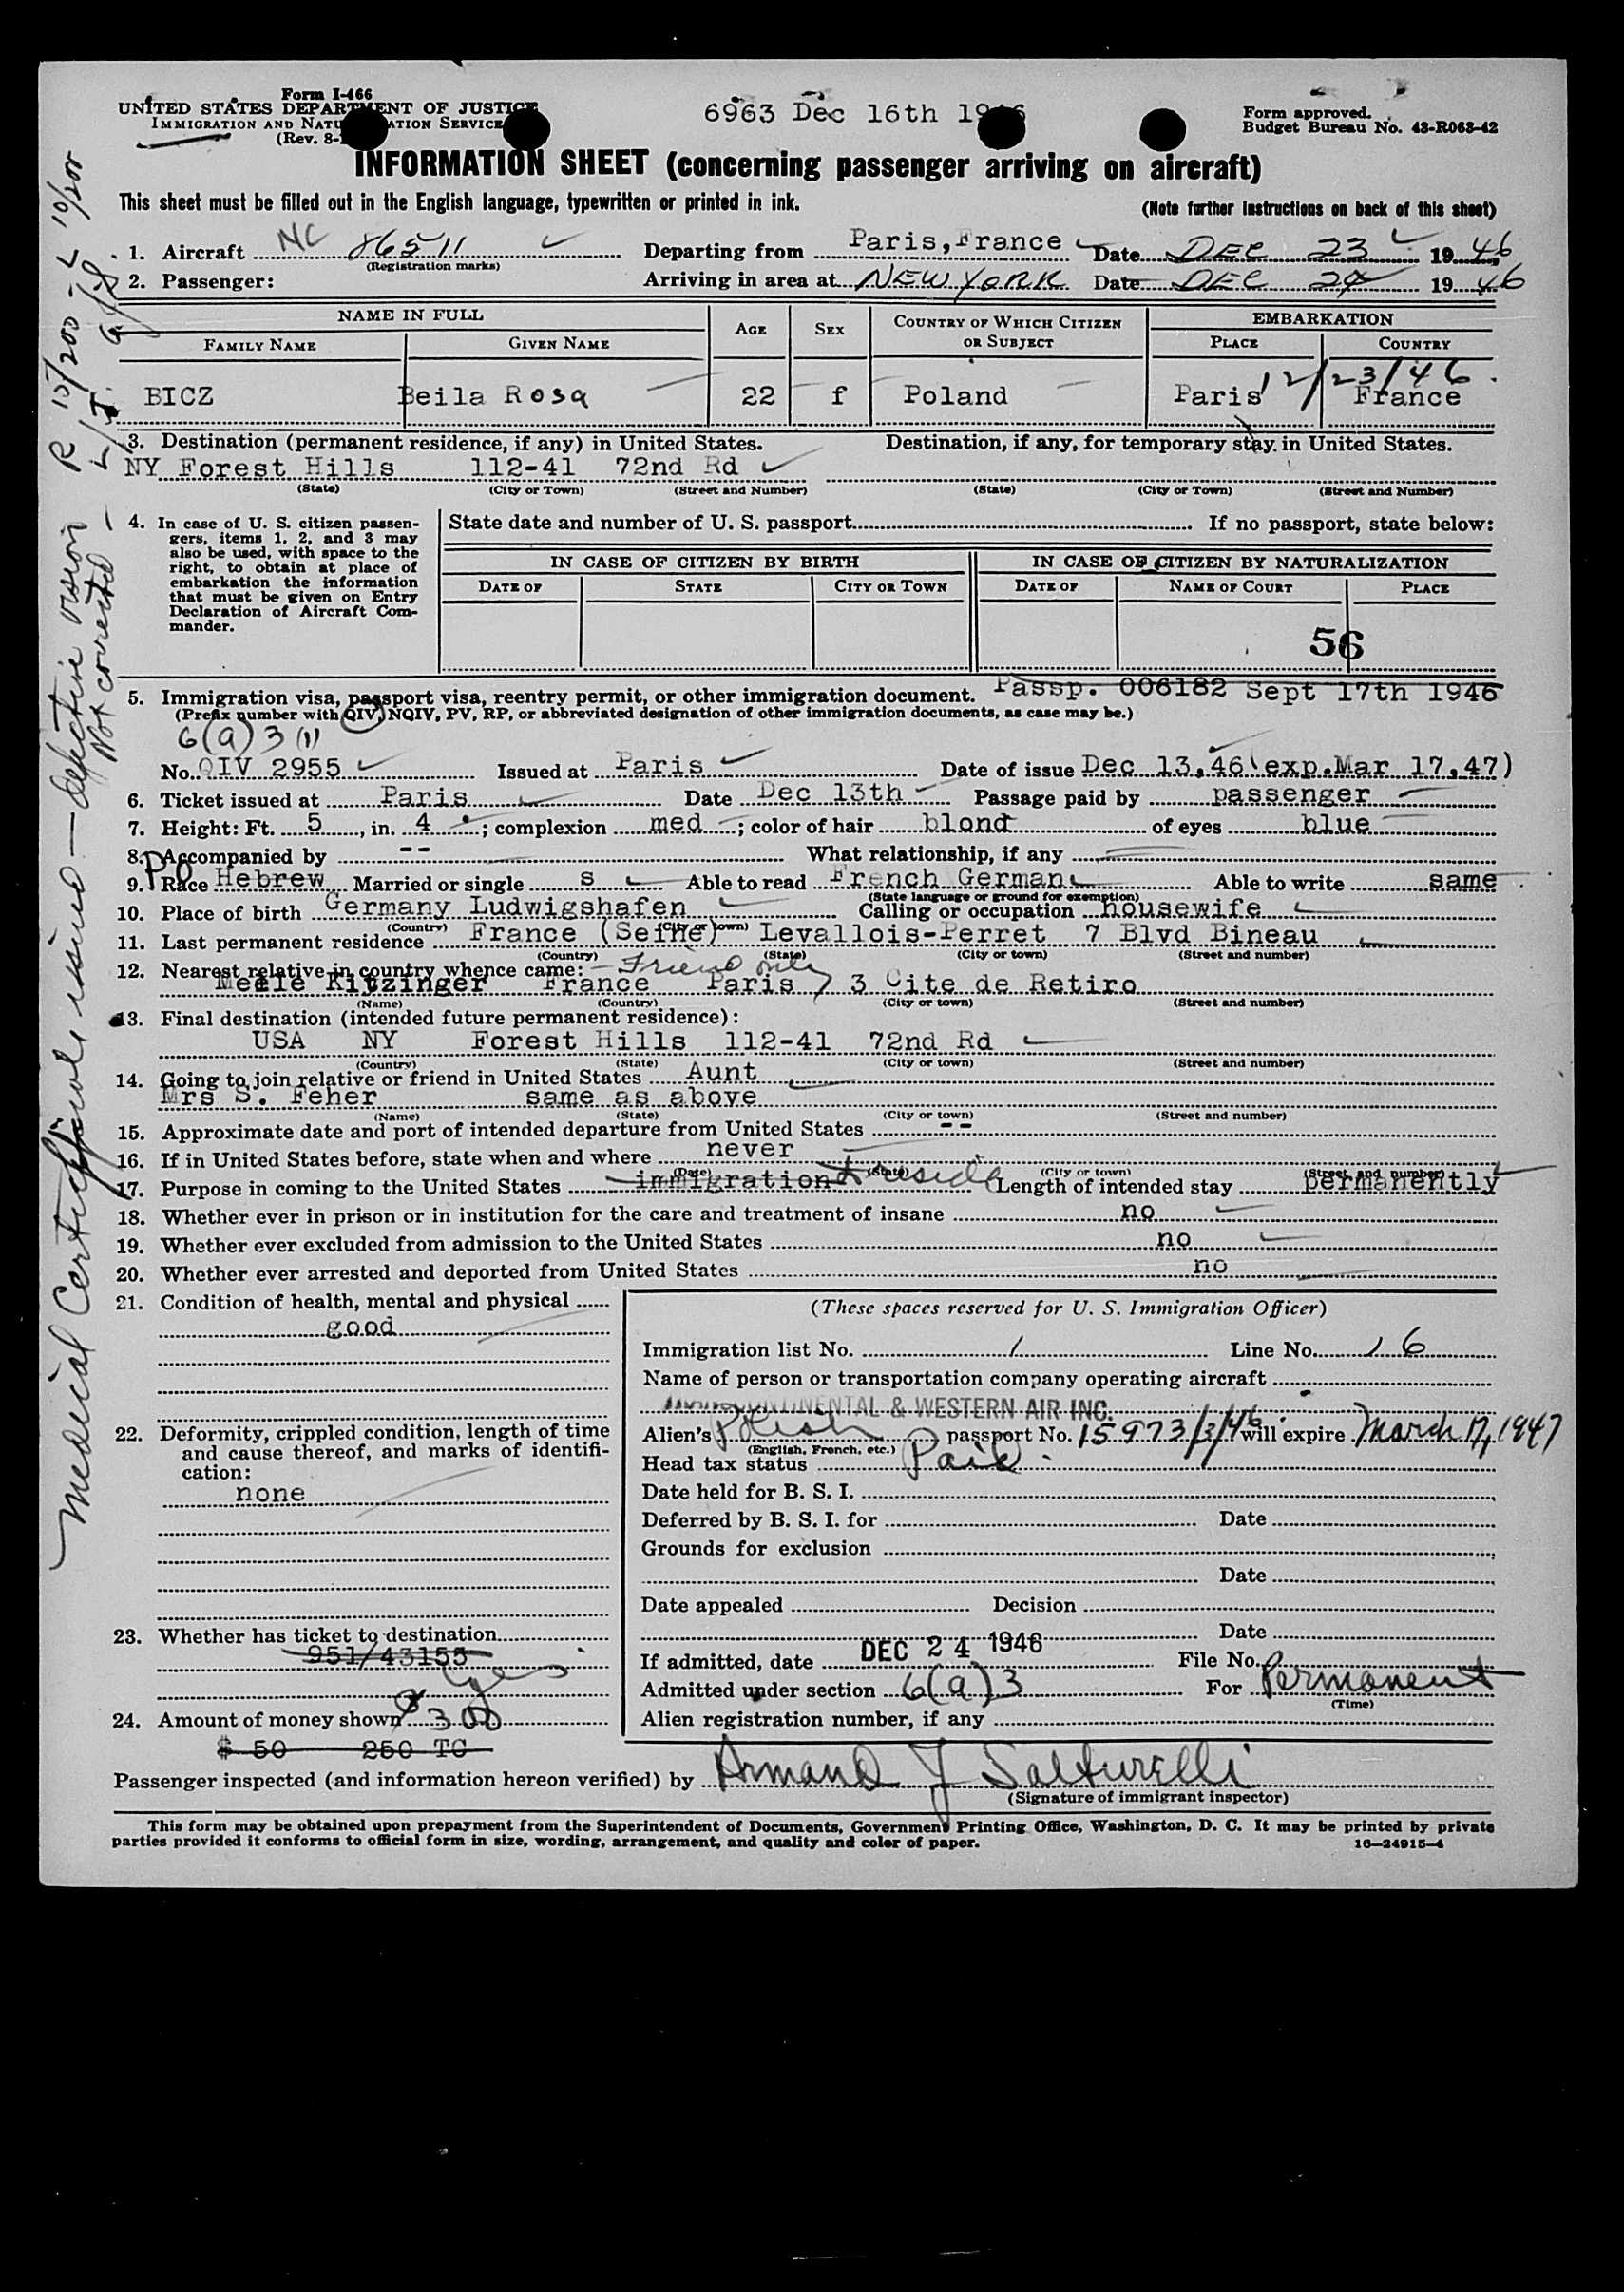 Form I-466
UNITED STATES DEPARTMENT OF JUSTICE
IMMIGRATION AND NATU ATION SERVICE
(Rev. 8-
6963 Dec 16th 19 6
Form approved.
Budget Bureau No. 43-R063-42
INFORMATION SHEET (concerning passenger arriving on aircraft)
This sheet must be filled out in the English language, typewritten or printed in ink.
(Note further instructions on back of this sheet)
1. Aircraft NC 86511 Departing from Paris, France Date DEC 23 1946
(Registration marks)
2. Passenger: Arriving in area at NEW YORK Date DEC 24 1946
NAME IN FULL AGE SEX COUNTRY OF WHICH CITIZEN OR SUBJECT EMBARKATION
FAMILY NAME GIVEN NAME PLACE COUNTRY
12/23/46.
BICZ Beila Rosa 22 f Poland Paris France
3. Destination (permanent residence, if any) in United States. Destination, if any, for temporary stay in United States.
NY Forest Hills 112-41 72nd Rd
(State) (City or Town) (Street and Number) (State) (City or Town) (Street and Number)
4. In case of U. S. citizen passen-
gers, items 1, 2, and 3 may
also be used, with space to the
right, to obtain at place of
embarkation the information
that must be given on Entry
Declaration of Aircraft Com-
mander.
State date and number of U. S. passport If no passport, state below:
IN CASE OF CITIZEN BY BIRTH IN CASE OF CITIZEN BY NATURALIZATION
DATE OF STATE CITY OR TOWN DATE OF NAME OF COURT PLACE
56
5. Immigration visa, passport visa, reentry permit, or other immigration document. Passp. 006182 Sept 17th 1946
(Prefix number with QIV, NQIV, PV, RP, or abbreviated designation of other immigration documents, as case may be.)
6(a)3(1)
No. QIV 2955 Issued at Paris Date of issue Dec 13,46(exp.Mar 17,47)
6. Ticket issued at Paris Date Dec 13th Passage paid by passenger
7. Height: Ft. 5, in. 4; complexion med; color of hair blond of eyes blue
8. Accompanied by -- What relationship, if any
9. Race Hebrew Married or single s Able to read French German Able to write same
(State language or ground for exemption)
10. Place of birth Germany Ludwigshafen Calling or occupation housewife
(Country) (City or town)
11. Last permanent residence France (Seine) Levallois-Perret 7 Blvd Bineau
(Country) (State) (City or town) (Street and number)
12. Nearest relative in country whence came: - Friend only
Meele Kitzinger France Paris, 3 Cite de Retiro
(Name) (Country) (City or town) (Street and number)
13. Final destination (intended future permanent residence):
USA NY Forest Hills 112-41 72nd Rd
(Country) (State) (City or town) (Street and number)
14. Going to join relative or friend in United States Aunt
Mrs S. Feher same as above
(Name) (State) (City or town) (Street and number)
15. Approximate date and port of intended departure from United States --
16. If in United States before, state when and where never
(Date) (State) (City or town) (Street and number)
17. Purpose in coming to the United States immigration to reside Length of intended stay permanently
18. Whether ever in prison or in institution for the care and treatment of insane no
19. Whether ever excluded from admission to the United States no
20. Whether ever arrested and deported from United States no
21. Condition of health, mental and physical
good
22. Deformity, crippled condition, length of time
and cause thereof, and marks of identifi-
cation:
none
23. Whether has ticket to destination
951/43155
yes
24. Amount of money shown $300
$ 50 250 TC
(These spaces reserved for U. S. Immigration Officer)
Immigration list No. 1 Line No. 16
Name of person or transportation company operating aircraft
CONTINENTAL & WESTERN AIR INC.
Alien's Polish passport No. 15973/3/46 will expire March 17, 1947
(English, French, etc.)
Head tax status Paid
Date held for B. S. I.
Deferred by B. S. I. for Date
Grounds for exclusion
Date
Date appealed Decision
Date
If admitted, date DEC 24 1946 File No.
Admitted under section 6(a)3 For Permanent
(Time)
Alien registration number, if any
Passenger inspected (and information hereon verified) by Armand J Salturelli
(Signature of immigrant inspector)
This form may be obtained upon prepayment from the Superintendent of Documents, Government Printing Office, Washington, D. C. It may be printed by private
parties provided it conforms to official form in size, wording, arrangement, and quality and color of paper. 16—24915-4
Medical Certificate issued — defective vision
R 15/200 - L 10/200
Not corrected -